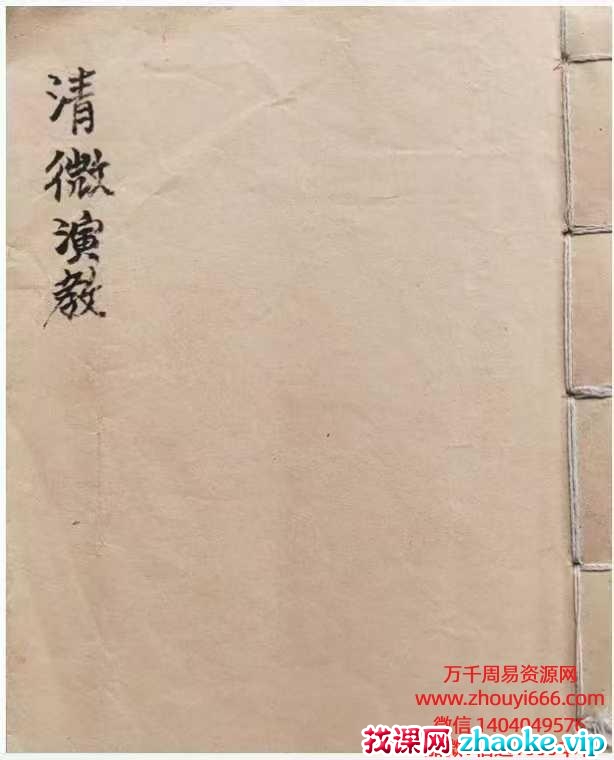 清微演教
万千周易资源网
www.zhouyi666.com
微信 1404049576
找课网 zhaoke.vip